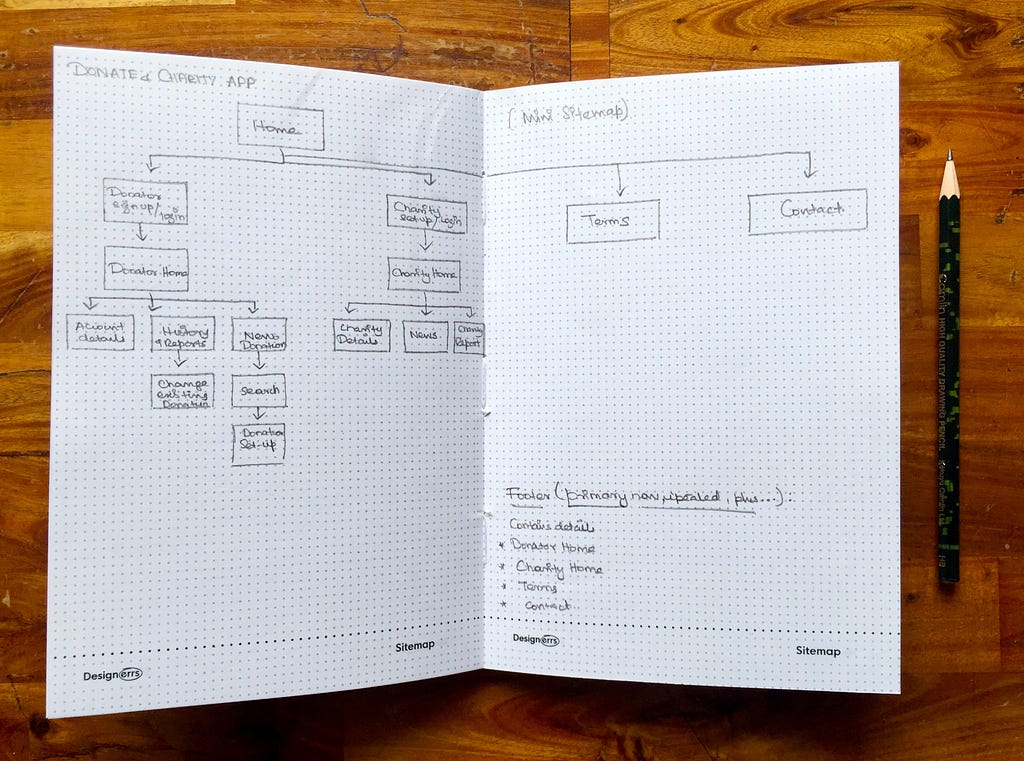 DONATE & CHARITY APP
Home
Donator
sign up/
login
Donator Home
Account
details
History
& Reports
Change
existing
Donation
News
Donation
Search
Donation
Set-up
Charity
set-up/Login
Charity Home
Charity
Details
News
Charity
Report
Designerrs
Sitemap
(Mini Sitemap)
Terms
Contact
Footer (primary nav, repeated, plus...):
Contains details
* Donator Home
* Charity Home
* Terms
* Contact
Designerrs
Sitemap
Camlin HIGH QUALITY DRAWING PENCIL
HB